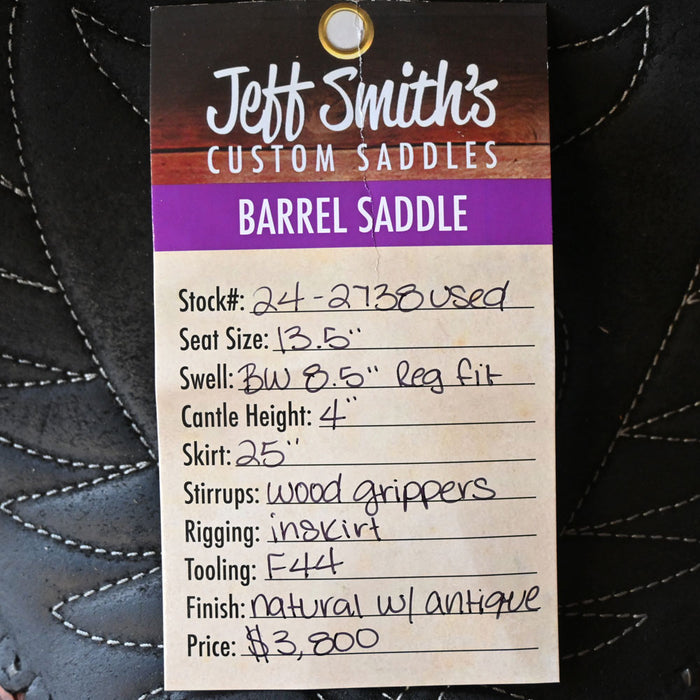 Jeff Smith's
CUSTOM SADDLES
BARREL SADDLE
Stock#: 24-2738 used
Seat Size: 13.5"
Swell: BW 8.5" Reg fit
Cantle Height: 4"
Skirt: 25"
Stirrups: wood grippers
Rigging: inskirt
Tooling: F44
Finish: natural w/ antique
Price: $3,800